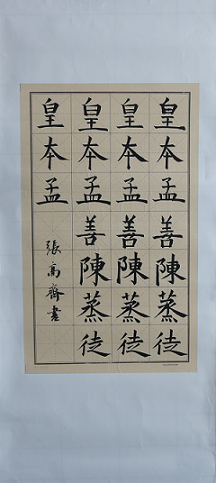 皇本孟善陳蒸徒
皇本孟善陳蒸徒
皇本孟善陳蒸徒
皇本孟
張高齊書